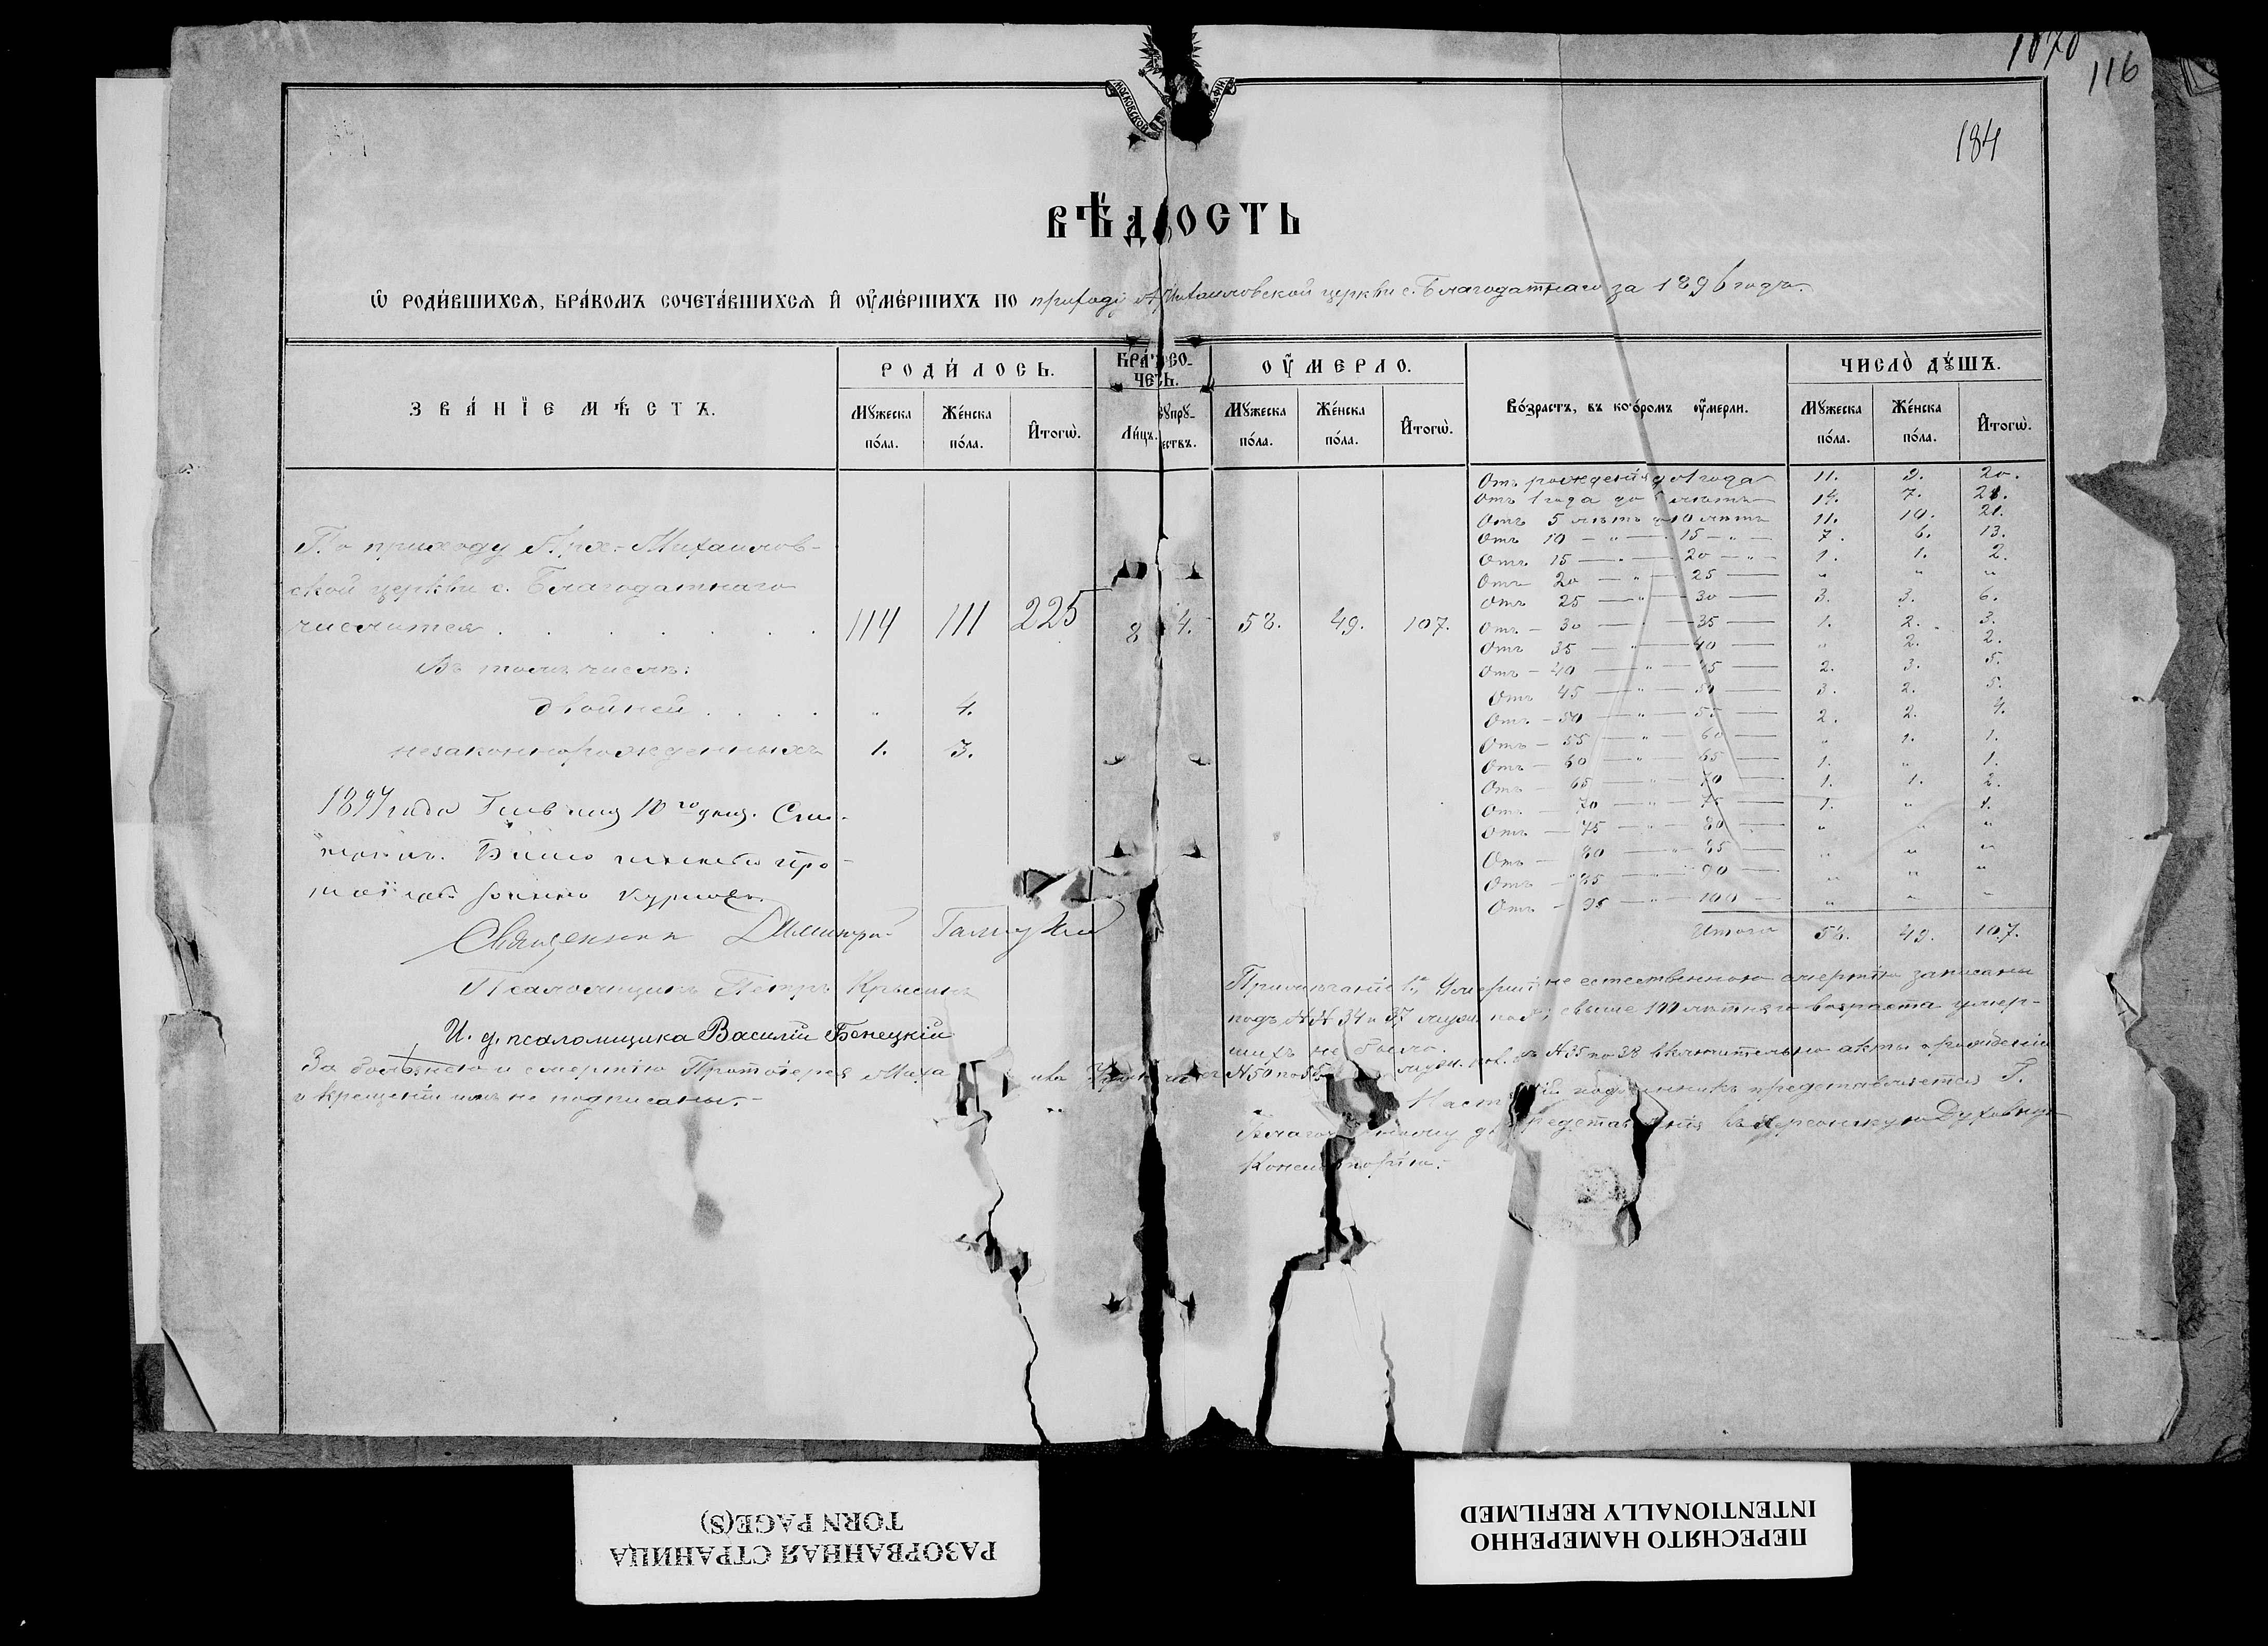 1070
116
184
ВѢДОСТЬ
Ѡ РОДИ́ВШИХСѦ, БРА́КОМЪ СОЧЕТА́ВШИХСѦ И҆ ОУ҆МЕ́РШИХЪ ПО приходу Михаиловской церкви с. Благодатнаго за 1896 годъ.
ЗВА́НІЕ МѢ́СТЪ.
РОДИ́ЛОСЬ.
Мꙋ́жеска по́ла.
Же́нска по́ла.
И҆тогѡ̀.
БРА́ СО-
ЧЕТ.
Ли́цъ.
сꙋпрꙋ́-
ествъ.
ОУ҆́МЕРЛО.
Мꙋ́жеска по́ла.
Же́нска по́ла.
И҆тогѡ̀.
Во́зрастъ, въ кото́ромъ оу҆́мерли.
ЧИСЛО̀ ДꙊ́ШЪ.
Мꙋ́жеска по́ла.
Же́нска по́ла.
И҆тогѡ̀.
По приходу Арх.-Михаилов-
ской церкви с. Благодатнаго
числится . . . . . . . 114 111 225 8 4. 58. 49. 107.
Въ томъ числѣ:
двойней . . . . „ 4.
незаконнорожденныхъ 1. 3.
Отъ рожденія до 1 года 11. 9. 20.
Отъ 1 года до 5 лѣтъ 14. 7. 21.
Отъ 5 лѣтъ до 10 лѣтъ 11. 10. 21.
Отъ 10 — „ — 15 — „ — 7. 6. 13.
Отъ 15 — „ — 20 — „ — 1. 1. 2.
Отъ 20 — „ — 25 — „ „ „
Отъ 25 — „ — 30 — 3. 3. 6.
Отъ — 30 — „ — 35 — 1. 2. 3.
Отъ 35 — „ — 40 — „ 2. 2.
Отъ — 40 — „ — 45 — 2. 3. 5.
Отъ 45 — „ — 50 — 3. 2. 5.
Отъ — 50 — „ — 55 — 2. 2. 4.
Отъ — 55 — „ — 60 — „ 1. 1.
Отъ — 60 — „ — 65 — 1. „ 1.
Отъ — 65 — „ — 70 — 1. 1. 2.
Отъ — 70 — „ — 75 — 1. „ 1.
Отъ — 75 — „ — 80 — „ „ „
Отъ — 80 — „ — 85 — „ „ „
Отъ — 85 — „ — 90 — „ „ „
Отъ — 95 — „ — 100 — „ „ „
Итого 58. 49. 107.
1897 года 10го дня.
Священникъ Димитрій
Псаломщикъ Петръ Крысинъ
И. д. псаломщика Василій Бенецкій
За болѣзнію и смертію Протоіерея Миха
и крещеніи имъ не подписаны.-
Примѣчаніе 1е, Умершіе не естественною смертію записаны
подъ №№ 34 и 37 муж. пола; свыше 100 лѣтняго возраста умер-
шихъ не было.
№ 50 по 55 муж. пол. съ № 35 по 38 включительно акты о рожденіи
подлинникъ представляется Г.
Благочинному для представленія въ Херсонскую Духовную
Консисторію.-
РАЗОРВАННАЯ СТРАНИЦА
TORN PAGE(S)
ПЕРЕСНЯТО НАМЕРЕННО
INTENTIONALLY REFILMED